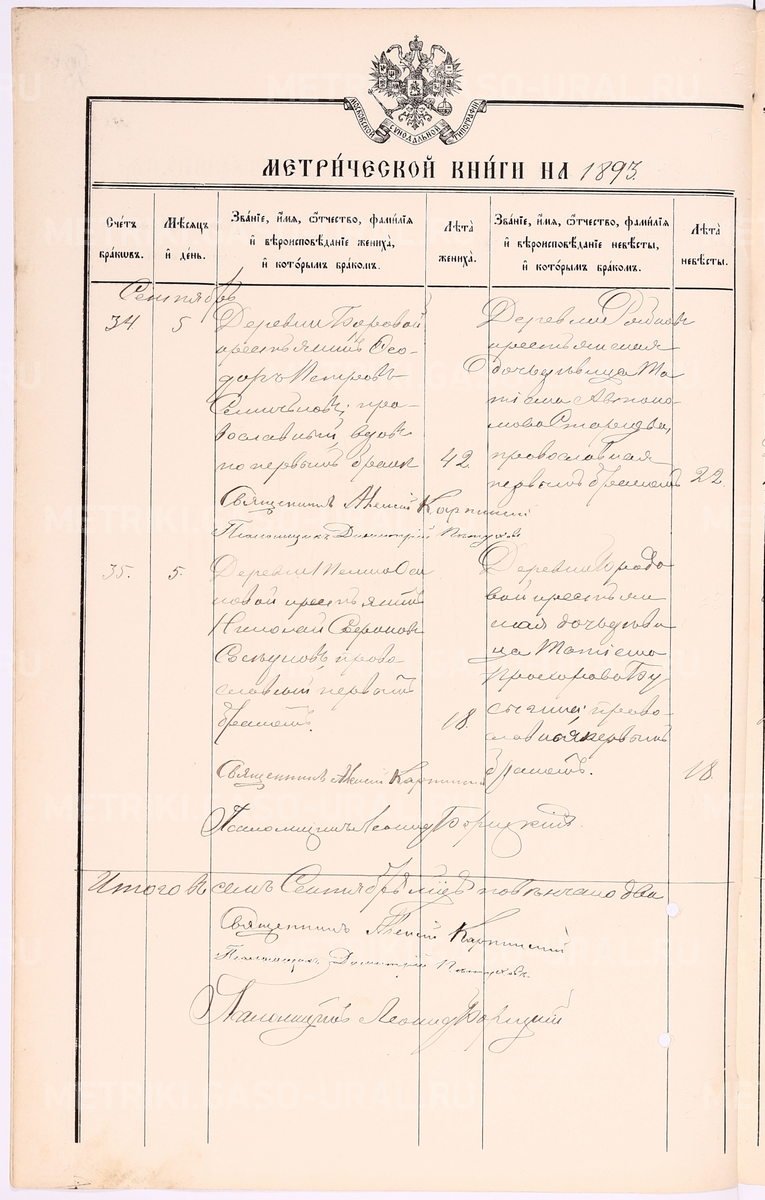 МОСКОВСКОЙ СѴНОДАЛЬНОЙ ТИПОГРАФІИ
МЕТРИ́ЧЕСКОЙ КНИ́ГИ НА 1893.
Счетъ браковъ.
Мѣсяцъ и день.
Званіе, имя, отчество, фамилія и вѣроисповѣданіе жениха, и которымъ бракомъ.
Лѣта жениха.
Званіе, имя, отчество, фамилія и вѣроисповѣданіе невѣсты, и которымъ бракомъ.
Лѣта невѣсты.
Сентябрь
34
5
Деревни Боровой
крестьянинъ Ѳео-
доръ Петровъ
православный, вдовъ
по первомъ бракѣ
42.
Деревни
крестьянская
дочь дѣвица Та
тіана Автоно-
мова
православная
первымъ бракомъ
22.
Священникъ Алексій Карпинскій
Псаломщикъ Димитрій
35.
5.
Деревни
новой крестьянинъ
Николай
право-
славный первымъ
бракомъ.
18.
Деревни
вой крестьян
ская дочь дѣви
ца Татіана
Прохорова Бу
сыгина; право-
славная первымъ
бракомъ.
18.
Священникъ Алексій Карпинскій
Псаломщикъ Леонид Борицкій
Итого въ семъ Сентябрѣ м-цѣ повѣнчано два
Священникъ Алексій Карпинскій
Псаломщикъ Димитрій
Псаломщикъ Леонид Борицкій
METRIKI.GASO-URAL.RU